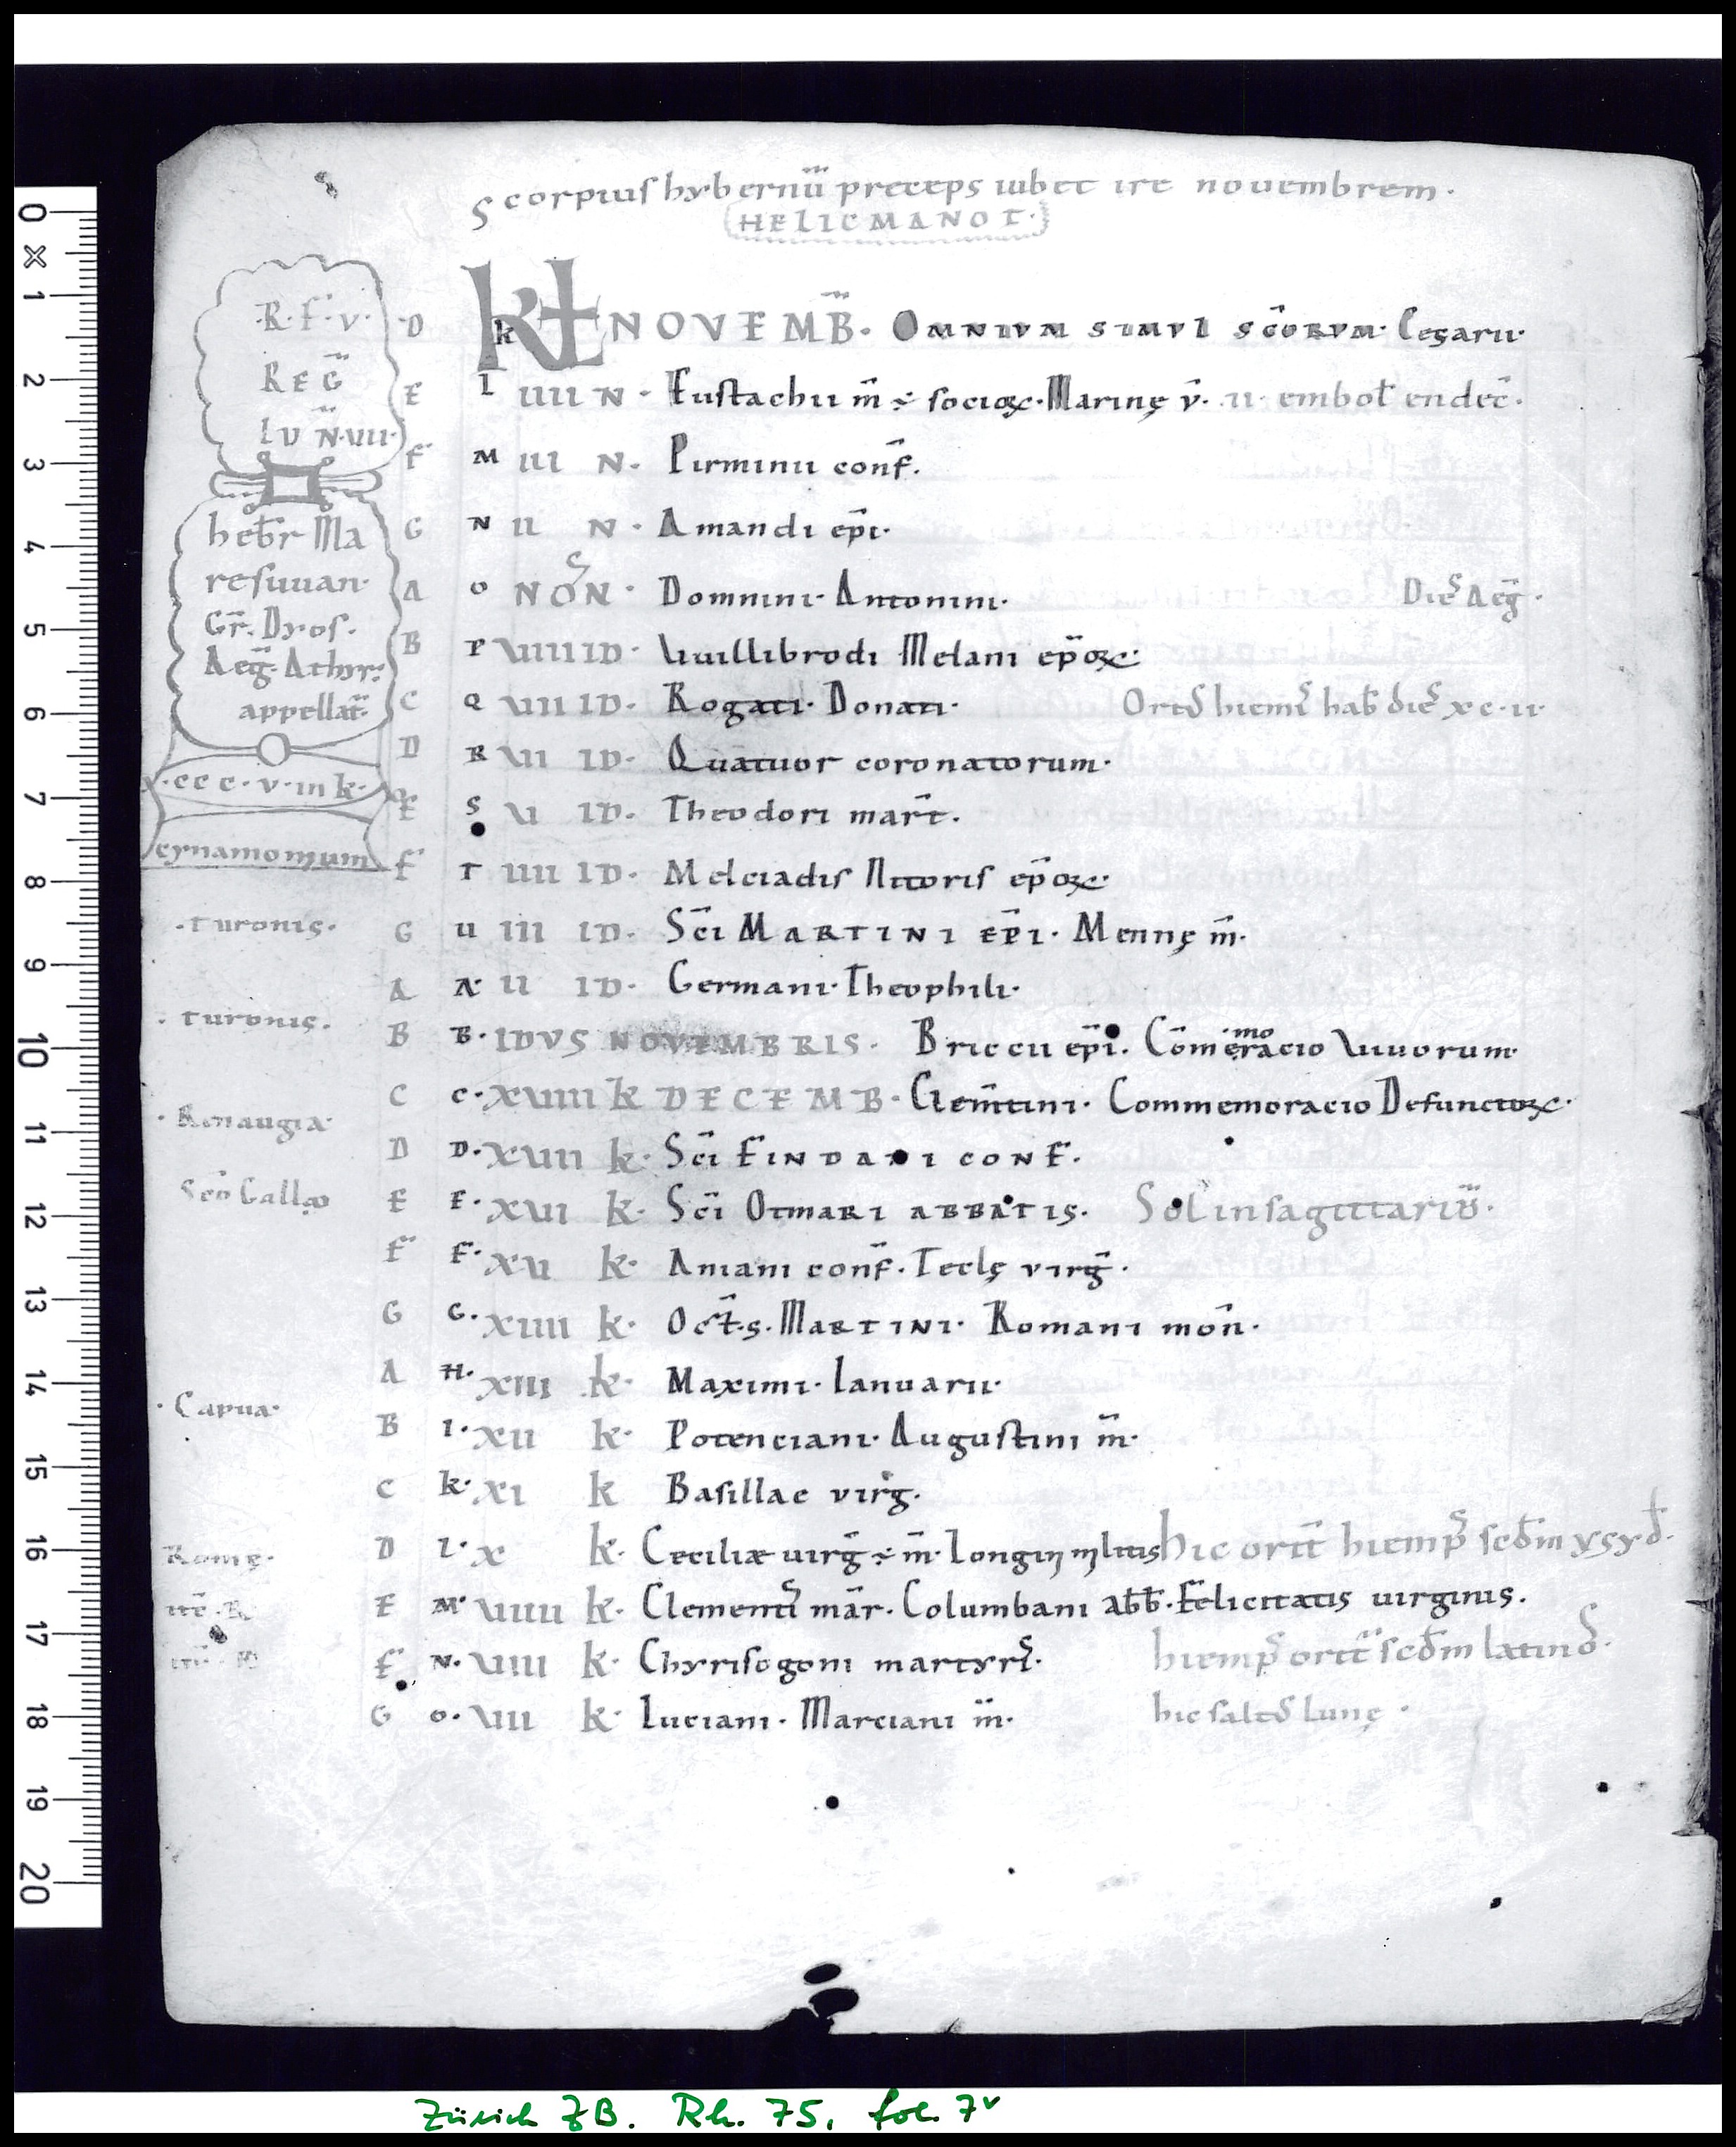 Scorpius hybernū preceps iubet ire nouembrem·
HELICMANOT·
·R·F·V·
REḠ
LVN̄·VII·
hebr̄ Ma
resuuan·
Gr̄. Dyos·
Aeḡ· Athyr·
appellat̄·
·ccc·v·iii k·
cynamomum
D k KL NOVEMB̄· OMNIVM SIMVL SC̄ORVM· Cesarii·
E L IIII N· Eustachii m̄ ÷ socioꝝ· Marinę v̄· II embol endec̄·
F M III N· Pirminii conf̄.
G N II N· Amandi ep̄i·
A O NON· Domnini· Antonini· Dies Aeḡ·
B P VIIII ID· Uuillibrodi Melani ep̄oꝝ·
C Q VIII ID· Rogati· Donati· Ortꝰ hiemis hab̄ dies xc·ii·
D R VI ID· Quatuor coronatorum·
E S V ID· Theodori mar̄t.
F T IIII ID· Melciadis Nitoris ep̄oꝝ·
·Turonis· G U III ID· Sc̄i MARTINI EP̄I· Mennę m̄·
A A· II ID· Germani· Theophili·
·Turonis· B B· IDVS NOVEMBRIS· Briccii ep̄i· Cōmemoracio Viuorum·
C C· XVIIII k DECEMB· Clem̄tini· Commemoracio Defunctoꝝ·
·Renaugia· D D· XVIII k· Sc̄i FINDANI CONF·
Sc̄o Gallo E E· XVI k· Sc̄i OTMARI ABBATIS· Sol in sagittariū·
F F· XV k· Aniani conf̄· Teclę virḡ·
G G· XIIII k· Oct̄s· MARTINI· Romani mōn·
A H· XIII k· Maximi· Ianuarii·
·Capua· B I· XII k· Potenciani· Augustini m̄·
C K· XI k Basillae virḡ·
Romę· D L· X k· Ceciliæ uirḡ ÷ m̄· Longini militis hic orit̄ hiemps scd̄m ysyd̄·
it̄· R E M· VIIII k· Clementis mār· Columbani abb̄· Felicitatis uirginis·
F N· VIII k· Chyrisogoni martyris· hiemps orit̄ scd̄m latinos·
G O· VII k· Luciani· Marciani m̄· hic saltꝰ lunę·
0 1 2 3 4 5 6 7 8 9 10 11 12 13 14 15 16 17 18 19 20
Zürich ZB. Rh. 75, fol. 7v